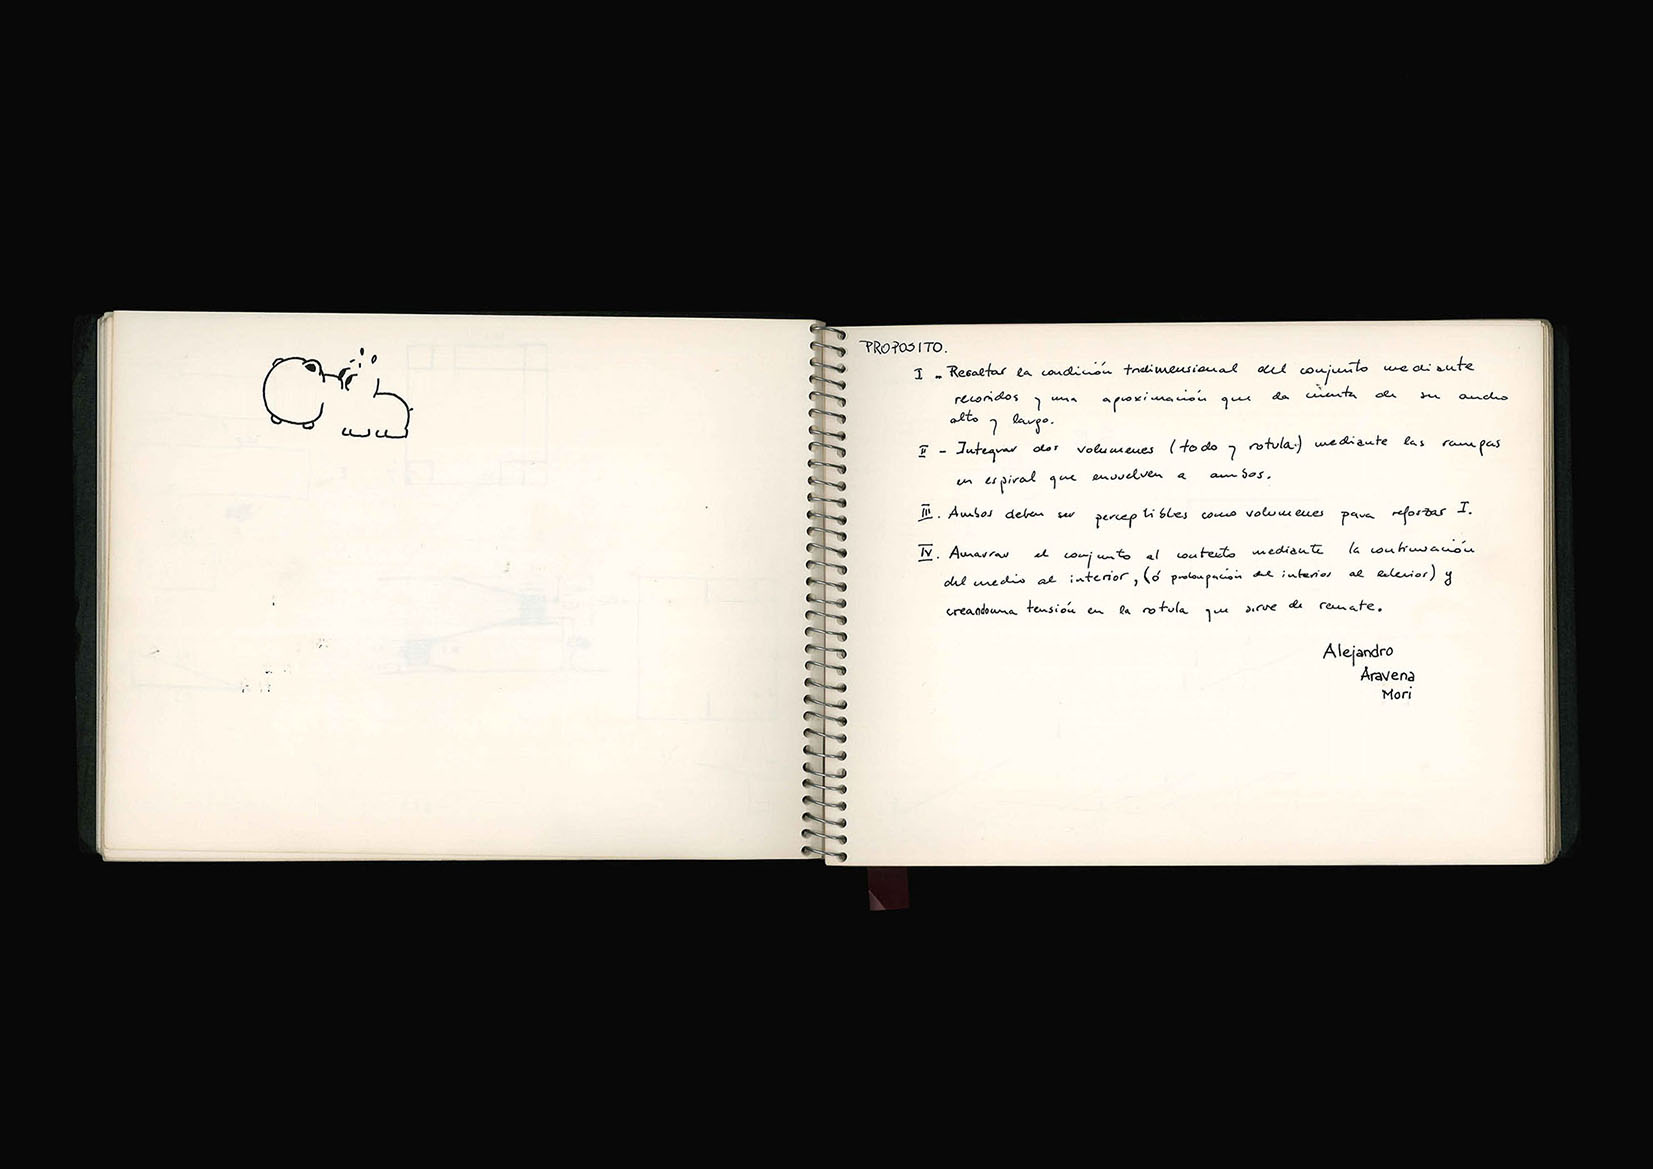 PROPOSITO.
I - Resaltar la condición tridimensional del conjunto mediante
recorridos y una aproximación que da cuenta de su ancho
alto y largo.
II - Integrar dos volumenes (todo y rotula) mediante las rampas
en espiral que envuelven a ambos.
III. Ambos deben ser perceptibles como volumenes para reforzar I.
IV. Amarrar el conjunto al contexto mediante la continuación
del medio al interior, (ó prolongación del interior al exterior) y
creando una tensión en la rotula que sirve de remate.
Alejandro
Aravena
Mori